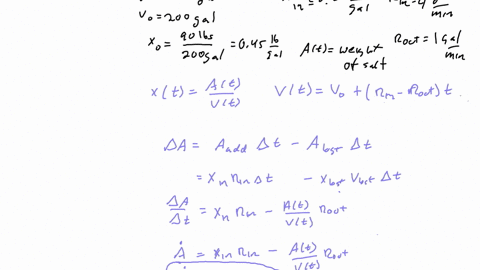 V₀ = 200 gal
gal
min
x₀ = 90 lbs / 200 gal = 0.45 lb/gal
A(t) = weight of salt
Rout = 1 gal/min
x(t) = A(t)/V(t)
V(t) = V₀ + (Rin - Rout) t
ΔA = Aadd Δt - Alost Δt
= xin Rin Δt - xlost Vlost Δt
ΔA/Δt = xin Rin - A(t)/V(t) Rout
Ȧ = xin Rin - A(t)/V(t) Rout